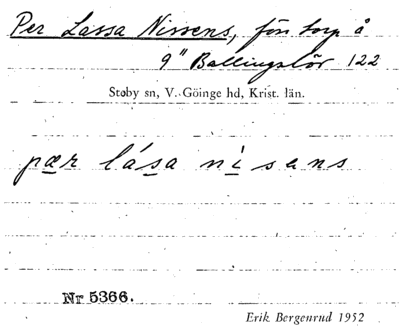 Per Lassa Nissens, förr torp å
9" Ballingslöv 122
Stoby sn, V. Göinge hd, Krist. län.
pær lása nìsens
Nr 5366.
Erik Bergenrud 1952